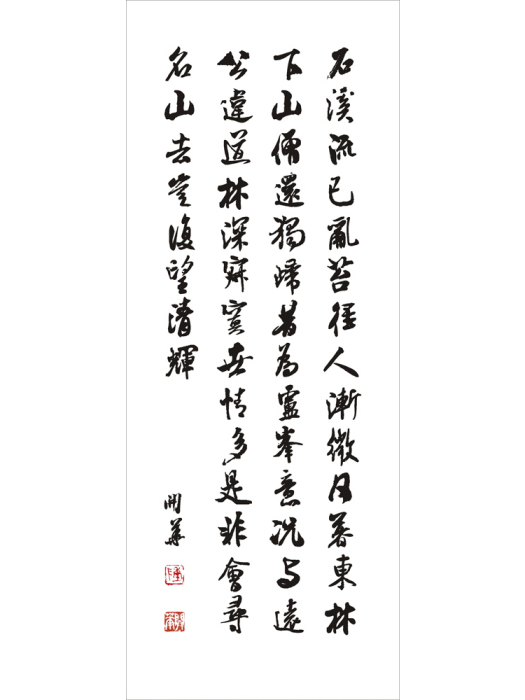 石溪流已亂苔徑人漸微日暮東林
下山僧還獨歸昔為靈峯意況与遠
公違道林深寂寞世情多是非會尋
名山去豈復望清輝
開華